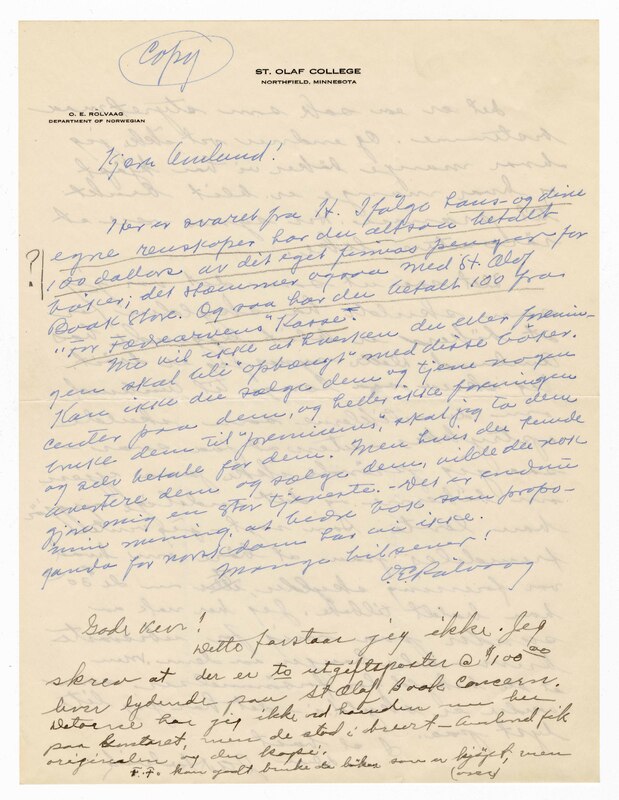 Copy
ST. OLAF COLLEGE
NORTHFIELD, MINNESOTA
O. E. ROLVAAG
DEPARTMENT OF NORWEGIAN
Kjære Amlund!
Her er svaret fra H. Ifølge hans- og dine
egne renskaper har du altsaa betalt
? 100 dollars av dit eget firmas penger for
bøker; det stemmer ogsaa med St. Olaf
Book Store. Og saa har du betalt 100 fra
"For Fædrearvens" Kasse".
Nu vil ikke at hverken du eller forenin-
gen skal bli "ophængt" med disse bøker.
Kan ikke du sælge dem og tjene nogen
center paa dem, og heller ikke foreningen
bruke dem til "premiums", skal jeg ta dem
og selv betale for dem. Men hvis du kunde
avertere dem og sælge dem, vilde du nok
gjøre mig en stor tjeneste. - Det er endnu
min mening, at bedre bok som propa-
ganda for norskdom har vi ikke.
Mange hilsener!
O. E. Rølvaag
Gode ven!
Dette forstaar jeg ikke. Jeg
skrev at der er to utgiftsposter @ $100.00
hver lydende paa St Olaf Book Concern.
Datoerne har jeg ikke ved haanden nu her
paa kontoret, men de stod i brevet - Amlund fik
originalen og du kopi.
F.F. kan godt bruke de bøker som er kjøpt, men
(over)